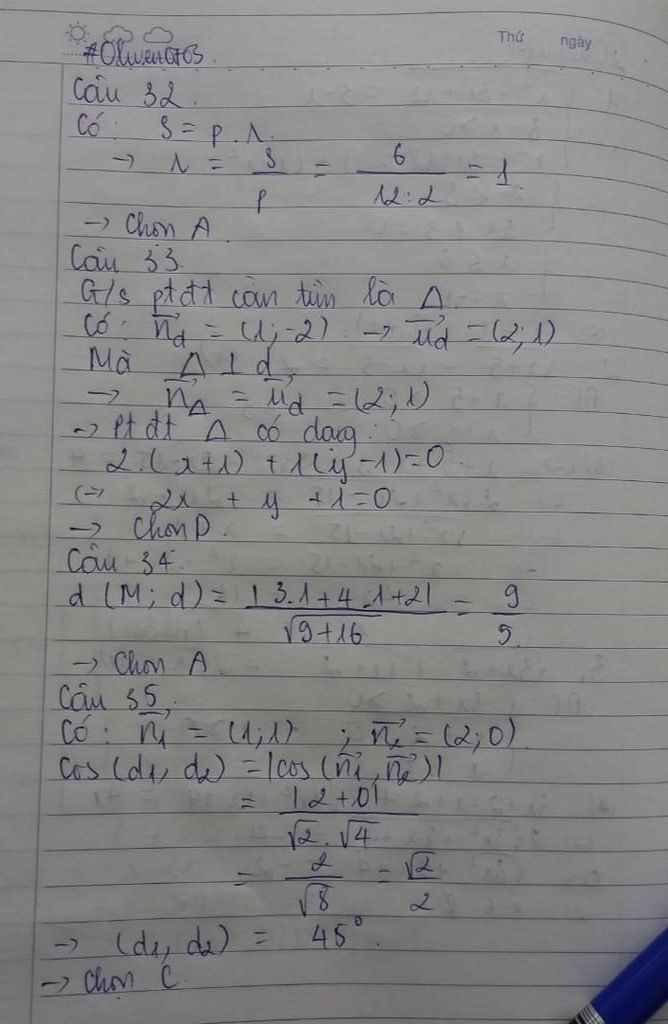 Thứ ngày
#Oliver0703
Câu 32.
Có: S = p.r.
→ r = S/p = 6/12:2 = 1.
→ Chọn A
Câu 33.
G/s ptđt cần tìm là Δ
Có: n⃗d = (1;-2) → u⃗d = (2;1)
Mà Δ ⊥ d
→ n⃗Δ = u⃗d = (2;1)
→ Pt đt Δ có dạng:
2.(x+1) + 1(y-1)=0.
(=) 2x + y + 1 = 0
→ Chọn D.
Câu 34.
d (M; d) = |3.1+4.1+2|/√9+16 = 9/5.
→ Chọn A.
Câu 35.
Có: n⃗1 = (1;1) ; n⃗2 = (2;0)
Cos (d1, d2) = |cos(n⃗1, n⃗2)|
= |2+0|/√2.√4
= 2/√8 = √2/2
→ (d1, d2) = 45°.
→ Chọn C.